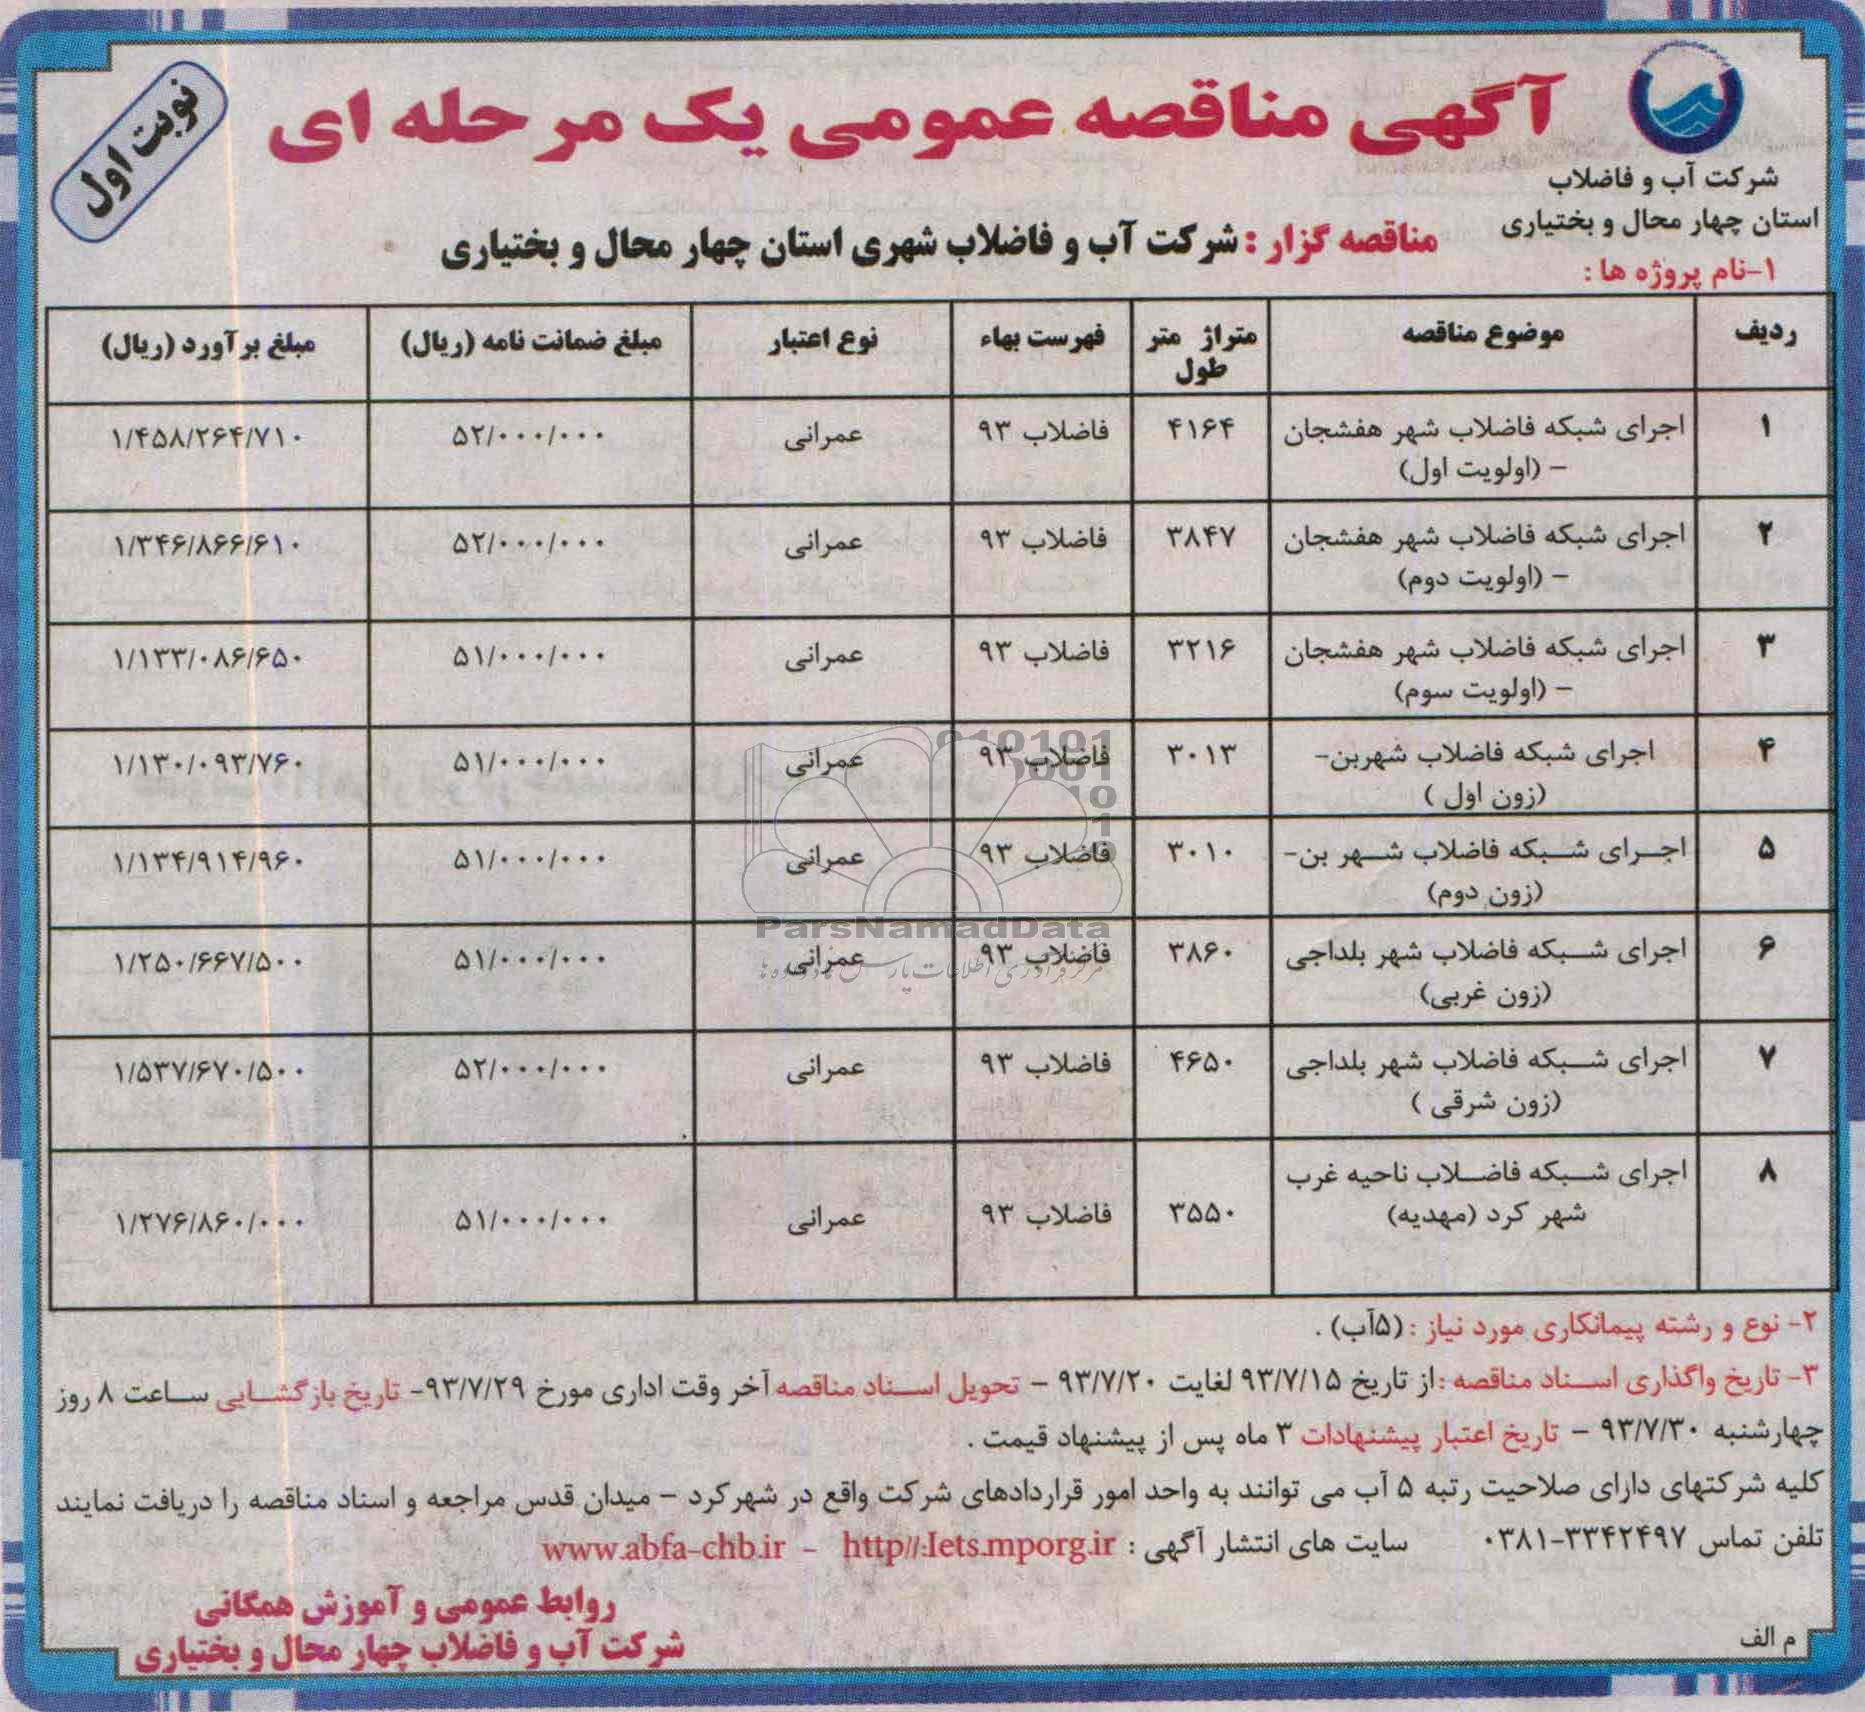 آگهی مناقصه عمومی یک مرحله ای
نوبت اول
شرکت آب و فاضلاب
استان چهار محال و بختیاری
مناقصه گزار : شرکت آب و فاضلاب شهری استان چهار محال و بختیاری
۱-نام پروژه ها :
ردیف موضوع مناقصه متراژ متر طول فهرست بهاء نوع اعتبار مبلغ ضمانت نامه (ریال) مبلغ برآورد (ریال)
۱ اجرای شبکه فاضلاب شهر هفشجان – (اولویت اول) ۴۱۶۴ فاضلاب ۹۳ عمرانی ۵۲/۰۰۰/۰۰۰ ۱/۴۵۸/۲۶۴/۷۱۰
۲ اجرای شبکه فاضلاب شهر هفشجان – (اولویت دوم) ۳۸۴۷ فاضلاب ۹۳ عمرانی ۵۲/۰۰۰/۰۰۰ ۱/۳۴۶/۸۶۶/۶۱۰
۳ اجرای شبکه فاضلاب شهر هفشجان – (اولویت سوم) ۳۲۱۶ فاضلاب ۹۳ عمرانی ۵۱/۰۰۰/۰۰۰ ۱/۱۳۳/۰۸۶/۶۵۰
۴ اجرای شبکه فاضلاب شهربن- (زون اول ) ۳۰۱۳ فاضلاب ۹۳ عمرانی ۵۱/۰۰۰/۰۰۰ ۱/۱۳۰/۰۹۳/۷۶۰
۵ اجرای شبکه فاضلاب شهر بن- (زون دوم) ۳۰۱۰ فاضلاب ۹۳ عمرانی ۵۱/۰۰۰/۰۰۰ ۱/۱۳۴/۹۱۴/۹۶۰
۶ اجرای شبکه فاضلاب شهر بلداجی (زون غربی) ۳۸۶۰ فاضلاب ۹۳ عمرانی ۵۱/۰۰۰/۰۰۰ ۱/۲۵۰/۶۶۷/۵۰۰
۷ اجرای شبکه فاضلاب شهر بلداجی (زون شرقی ) ۴۶۵۰ فاضلاب ۹۳ عمرانی ۵۲/۰۰۰/۰۰۰ ۱/۵۳۷/۶۷۰/۵۰۰
۸ اجرای شبکه فاضلاب ناحیه غرب شهر کرد (مهدیه) ۳۵۵۰ فاضلاب ۹۳ عمرانی ۵۱/۰۰۰/۰۰۰ ۱/۲۷۶/۸۶۰/۰۰۰
ParsNamadData
۲- نوع و رشته پیمانکاری مورد نیاز : (۵آب) .
۳- تاریخ واگذاری اسناد مناقصه :از تاریخ ۹۳/۷/۱۵ لغایت ۹۳/۷/۲۰ – تحویل اسناد مناقصه آخر وقت اداری مورخ ۹۳/۷/۲۹- تاریخ بازگشایی ساعت ۸ روز
چهارشنبه ۹۳/۷/۳۰ – تاریخ اعتبار پیشنهادات ۳ ماه پس از پیشنهاد قیمت .
کلیه شرکتهای دارای صلاحیت رتبه ۵ آب می توانند به واحد امور قراردادهای شرکت واقع در شهرکرد – میدان قدس مراجعه و اسناد مناقصه را دریافت نمایند
تلفن تماس ۳۳۴۲۴۹۷-۰۳۸۱ سایت های انتشار آگهی : http//:Iets.mporg.ir - www.abfa-chb.ir
روابط عمومی و آموزش همگانی
شرکت آب و فاضلاب چهار محال و بختیاری
م الف